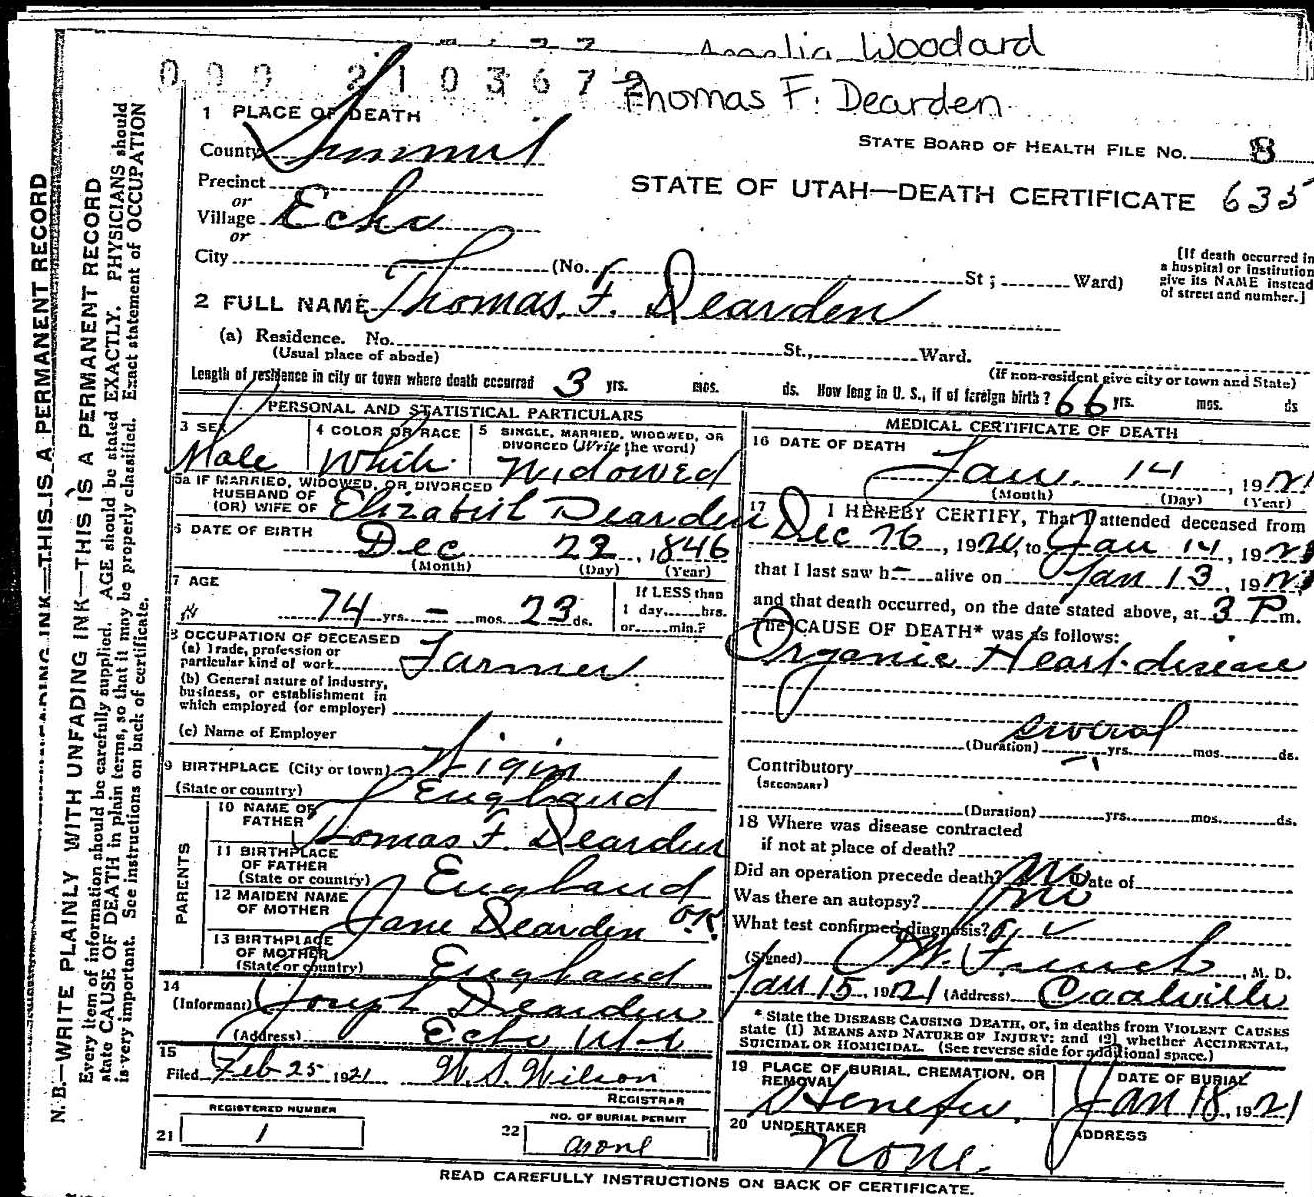 Woodard
000 2103672
Thomas F. Dearden
1 PLACE OF DEATH
STATE BOARD OF HEALTH FILE No. 8
County Summit
STATE OF UTAH—DEATH CERTIFICATE 635
Precinct
or
Village Echo
or
City (No. St; Ward)
[If death occurred in
a hospital or institution
give its NAME instead
of street and number.]
2 FULL NAME Thomas. F. Dearden
(a) Residence. No. St., Ward.
(Usual place of abode)
(If non-resident give city or town and State)
Length of residence in city or town where death occurred 3 yrs. mos. ds. How long in U. S., if of foreign birth? 66 yrs. mos. ds
PERSONAL AND STATISTICAL PARTICULARS
3 SEX Male
4 COLOR OR RACE White
5 SINGLE, MARRIED, WIDOWED, OR
DIVORCED (Write the word)
Widowed
5a IF MARRIED, WIDOWED, OR DIVORCED
HUSBAND OF
(OR) WIFE OF Elizabeth Dearden
6 DATE OF BIRTH Dec 22, 1846
(Month) (Day) (Year)
7 AGE
74 yrs. — mos. 23 ds.
If LESS than
1 day, hrs.
or min.?
8 OCCUPATION OF DECEASED
(a) Trade, profession or
particular kind of work Farmer
(b) General nature of industry,
business, or establishment in
which employed (or employer)
(c) Name of Employer
9 BIRTHPLACE (City or town) Wigin
(State or country) England
PARENTS
10 NAME OF
FATHER Thomas F. Dearden
11 BIRTHPLACE
OF FATHER
(State or country) England
12 MAIDEN NAME
OF MOTHER Jane Dearden OK.
13 BIRTHPLACE
OF MOTHER
(State or country) England
14
(Informant) Joseph Dearden
(Address) Echo Utah
15
Filed Feb 25 1921 W. S. Wilson
REGISTRAR
REGISTERED NUMBER
21 1
NO. OF BURIAL PERMIT
22 none
MEDICAL CERTIFICATE OF DEATH
16 DATE OF DEATH
Jan. 14, 1921
(Month) (Day) (Year)
17 I HEREBY CERTIFY, That I attended deceased from
Dec 26, 1920, to Jan 14, 1921
that I last saw h— alive on Jan 13, 1921
and that death occurred, on the date stated above, at 3 P m.
The CAUSE OF DEATH* was as follows:
Organic Heart disease
several
(Duration) yrs. mos. ds.
Contributory
(SECONDARY)
(Duration) yrs. mos. ds.
18 Where was disease contracted
if not at place of death?
Did an operation precede death? no Date of
Was there an autopsy? no
What test confirmed diagnosis?
(Signed) French, M. D.
Jan 15, 1921 (Address) Coalville
* State the DISEASE CAUSING DEATH, or, in deaths from VIOLENT CAUSES
state (1) MEANS AND NATURE OF INJURY; and (2) whether ACCIDENTAL,
SUICIDAL OR HOMICIDAL. (See reverse side for additional space.)
19 PLACE OF BURIAL, CREMATION, OR
REMOVAL
Henefer.
DATE OF BURIAL
Jan 18, 1921
20 UNDERTAKER
None
ADDRESS
READ CAREFULLY INSTRUCTIONS ON BACK OF CERTIFICATE.
N. B.—WRITE PLAINLY WITH UNFADING INK—THIS IS A PERMANENT RECORD
Every item of information should be carefully supplied. AGE should be stated EXACTLY. PHYSICIANS should
state CAUSE OF DEATH in plain terms, so that it may be properly classified. Exact statement of OCCUPATION
is very important. See instructions on back of certificate.
INK—THIS IS A PERMANENT RECORD